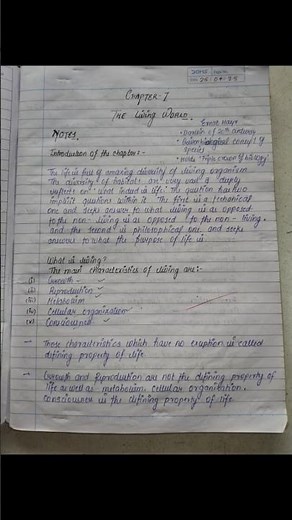 26/04/25
CHAPTER-1
The Living WORLD.
NOTES
Ernst Mayr
• Darwin of 20th century
• Biological concept of
species
Introduction of the chapter:-
• wide "Triple crown of biology
The life is full of amazing diversity of living organism
The diversity of habitats are very vast & deeply
reflect on "what indeed is life" The question has two
implicit questions within it. The first is a technical
one and seeks answer to what living is as opposed
to the non-living is as opposed to the non-living.
and the second is philosophical one, and seeks
answers to what the purpose of life is.
What is living?
The main characteristics of living are:-
(i) Growth -
(ii) Reproduction
(iii) Metabolism
(iv) Cellular organization
(v) Consciousness
→ Those characteristics which have no exception is called
defining property of life
→ Growth and Reproduction are not the defining property of
life as well as metabolism, cellular organisation,
consciousness is the defining property of life.